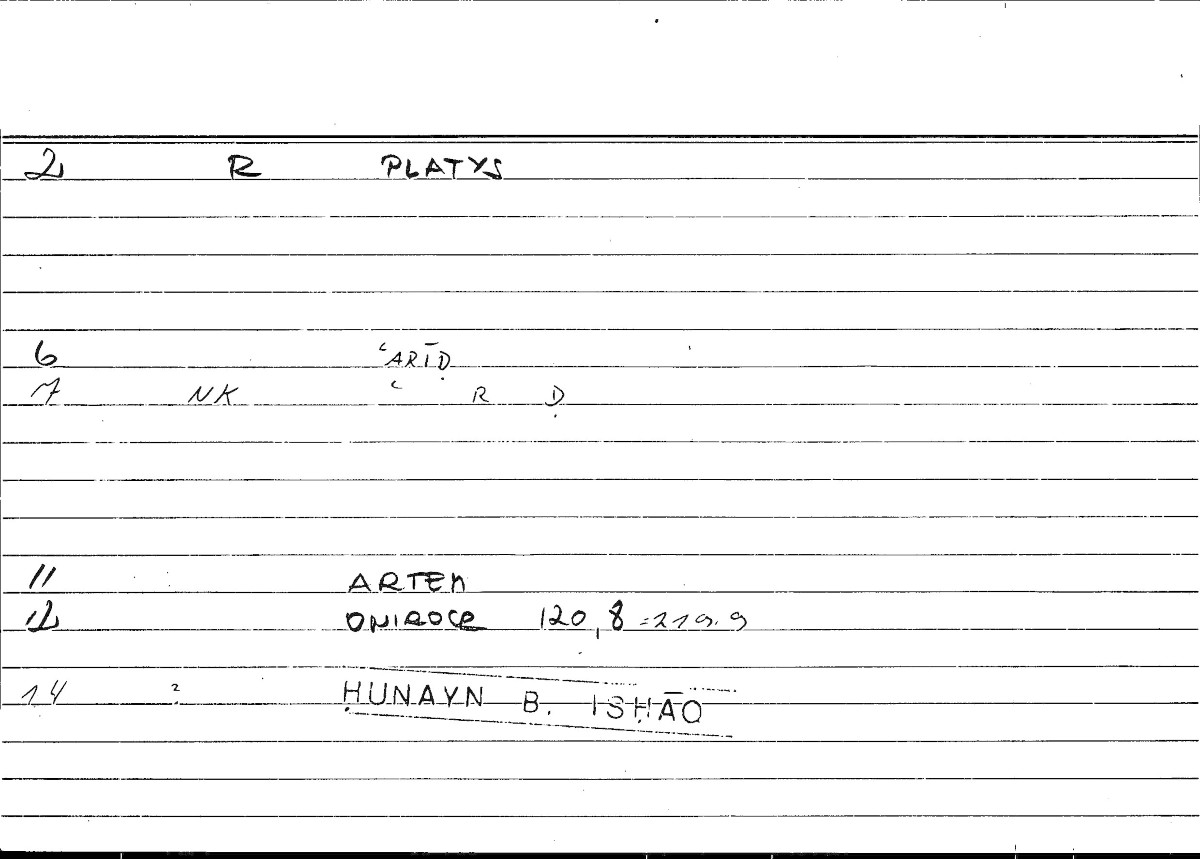 2 R PLATYS
6 ʿARĪḌ
7 NK ʿ R Ḍ
11 ARTEM
12 ONIROCR 120,8 =219.9
14 2 ḤUNAYN B. ISḤĀQ